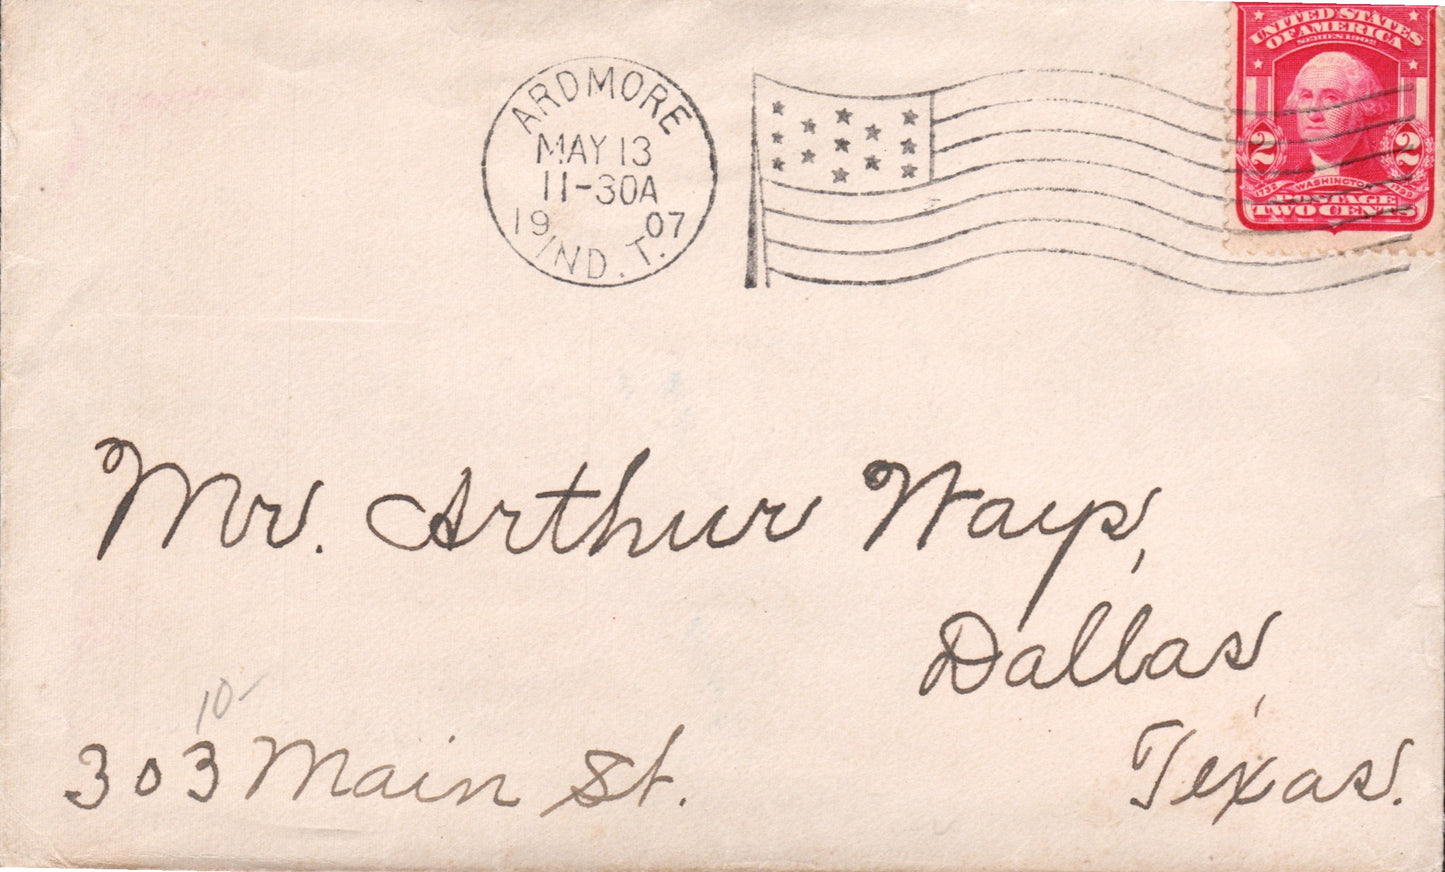 ARDMORE
MAY 13
11-30A
1907
IND. T.
UNITED STATES
OF AMERICA
SERIES 1902
2 2
1732 WASHINGTON 1799
POSTAGE
TWO CENTS
Mr. Arthur Ways,
Dallas,
Texas.
10-
303 Main St.